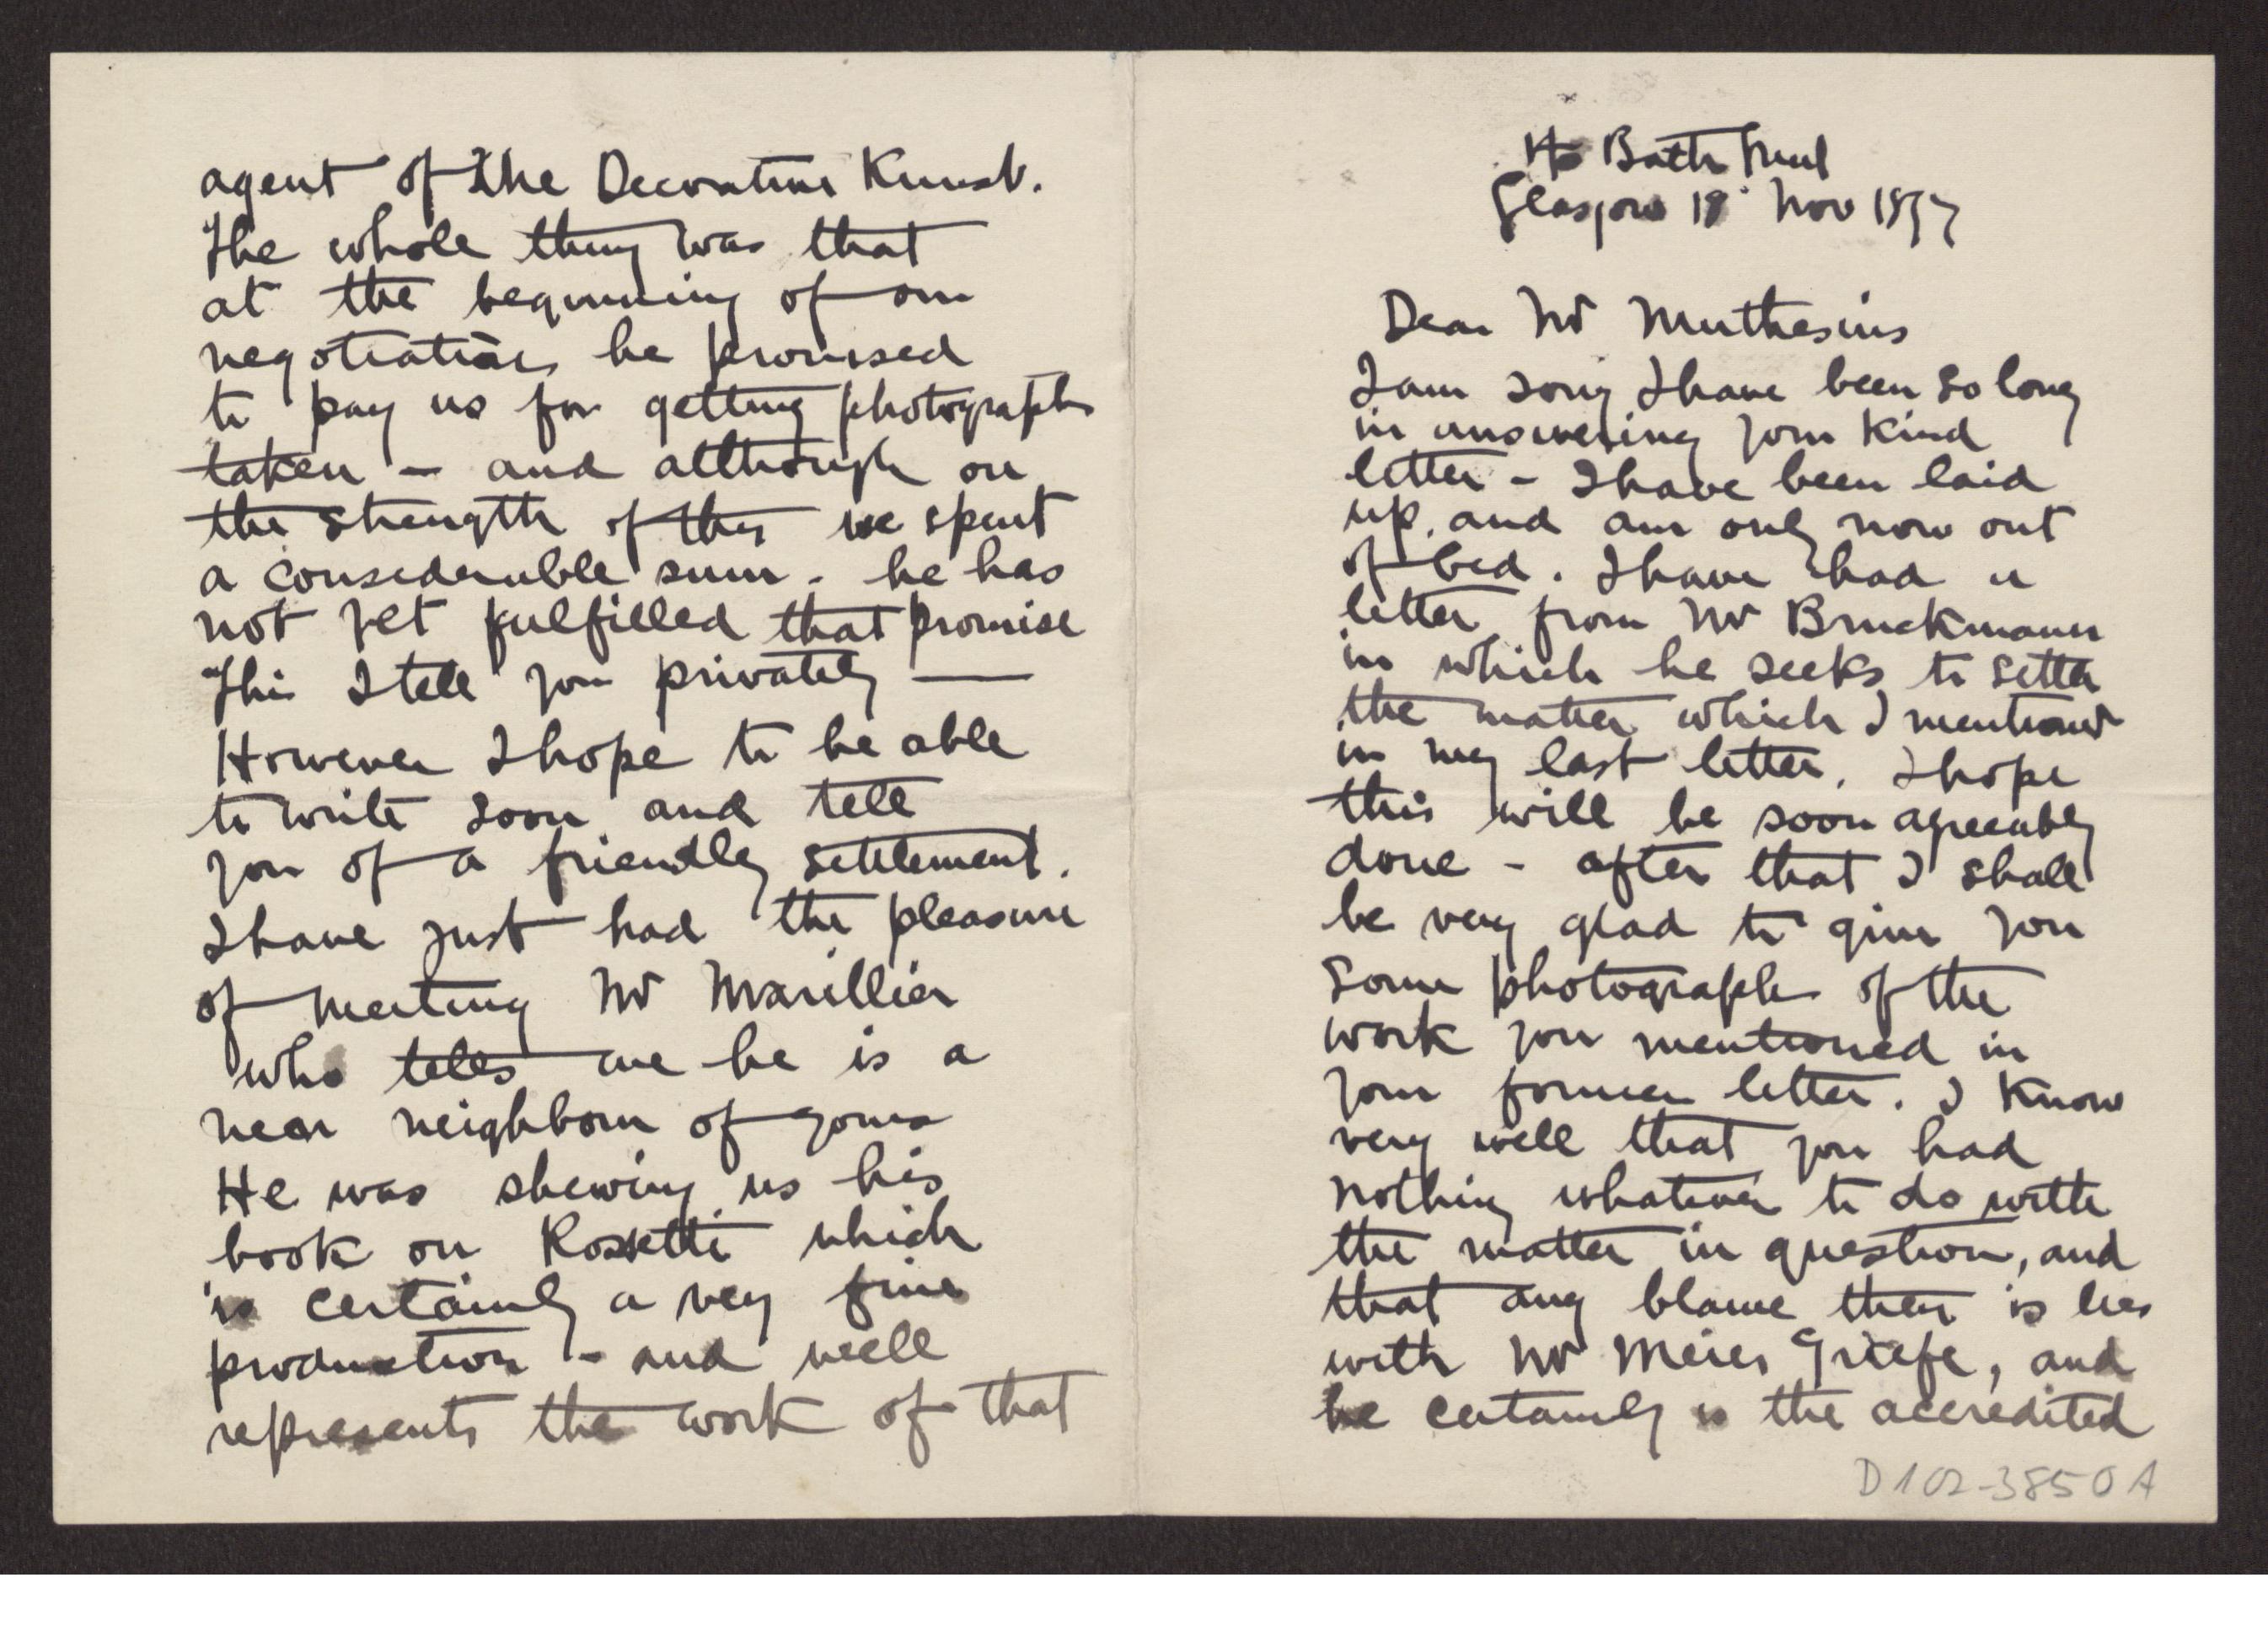 Bath Street
Glasgow Nov
Dear Mr Muthesius
I am sorry I have been so long
in answering your kind
letter - I have been laid
up, and am only now out
of bed. I have had a
letter from Mr Bruckmann
in which he seeks to settle
the matter which I mentioned
in my last letter. I hope
this will be soon agreeably
done - after that I shall
be very glad to give you
some photographs of the
work you mentioned in
your former letter. I know
very well that you had
nothing whatever to do with
the matter in question, and
that any blame there is lies
with Mr Meier Griefe, and
he certainly is the accredited
D102-3850A
agent of The Decorative Kunst.
The whole thing was that
at the beginning of our
negotiations he promised
to pay us for getting photographs
taken - and although on
the strength of this we spent
a considerable sum - he has
not yet fulfilled that promise
This I tell you privately —
However I hope to be able
to write soon and tell
you of a friendly settlement.
I have just had the pleasure
of meeting Mr Marillier
who tells me he is a
near neighbour of yours
He was shewing us his
book on Rossetti which
is certainly a very fine
production - and well
represents the work of that